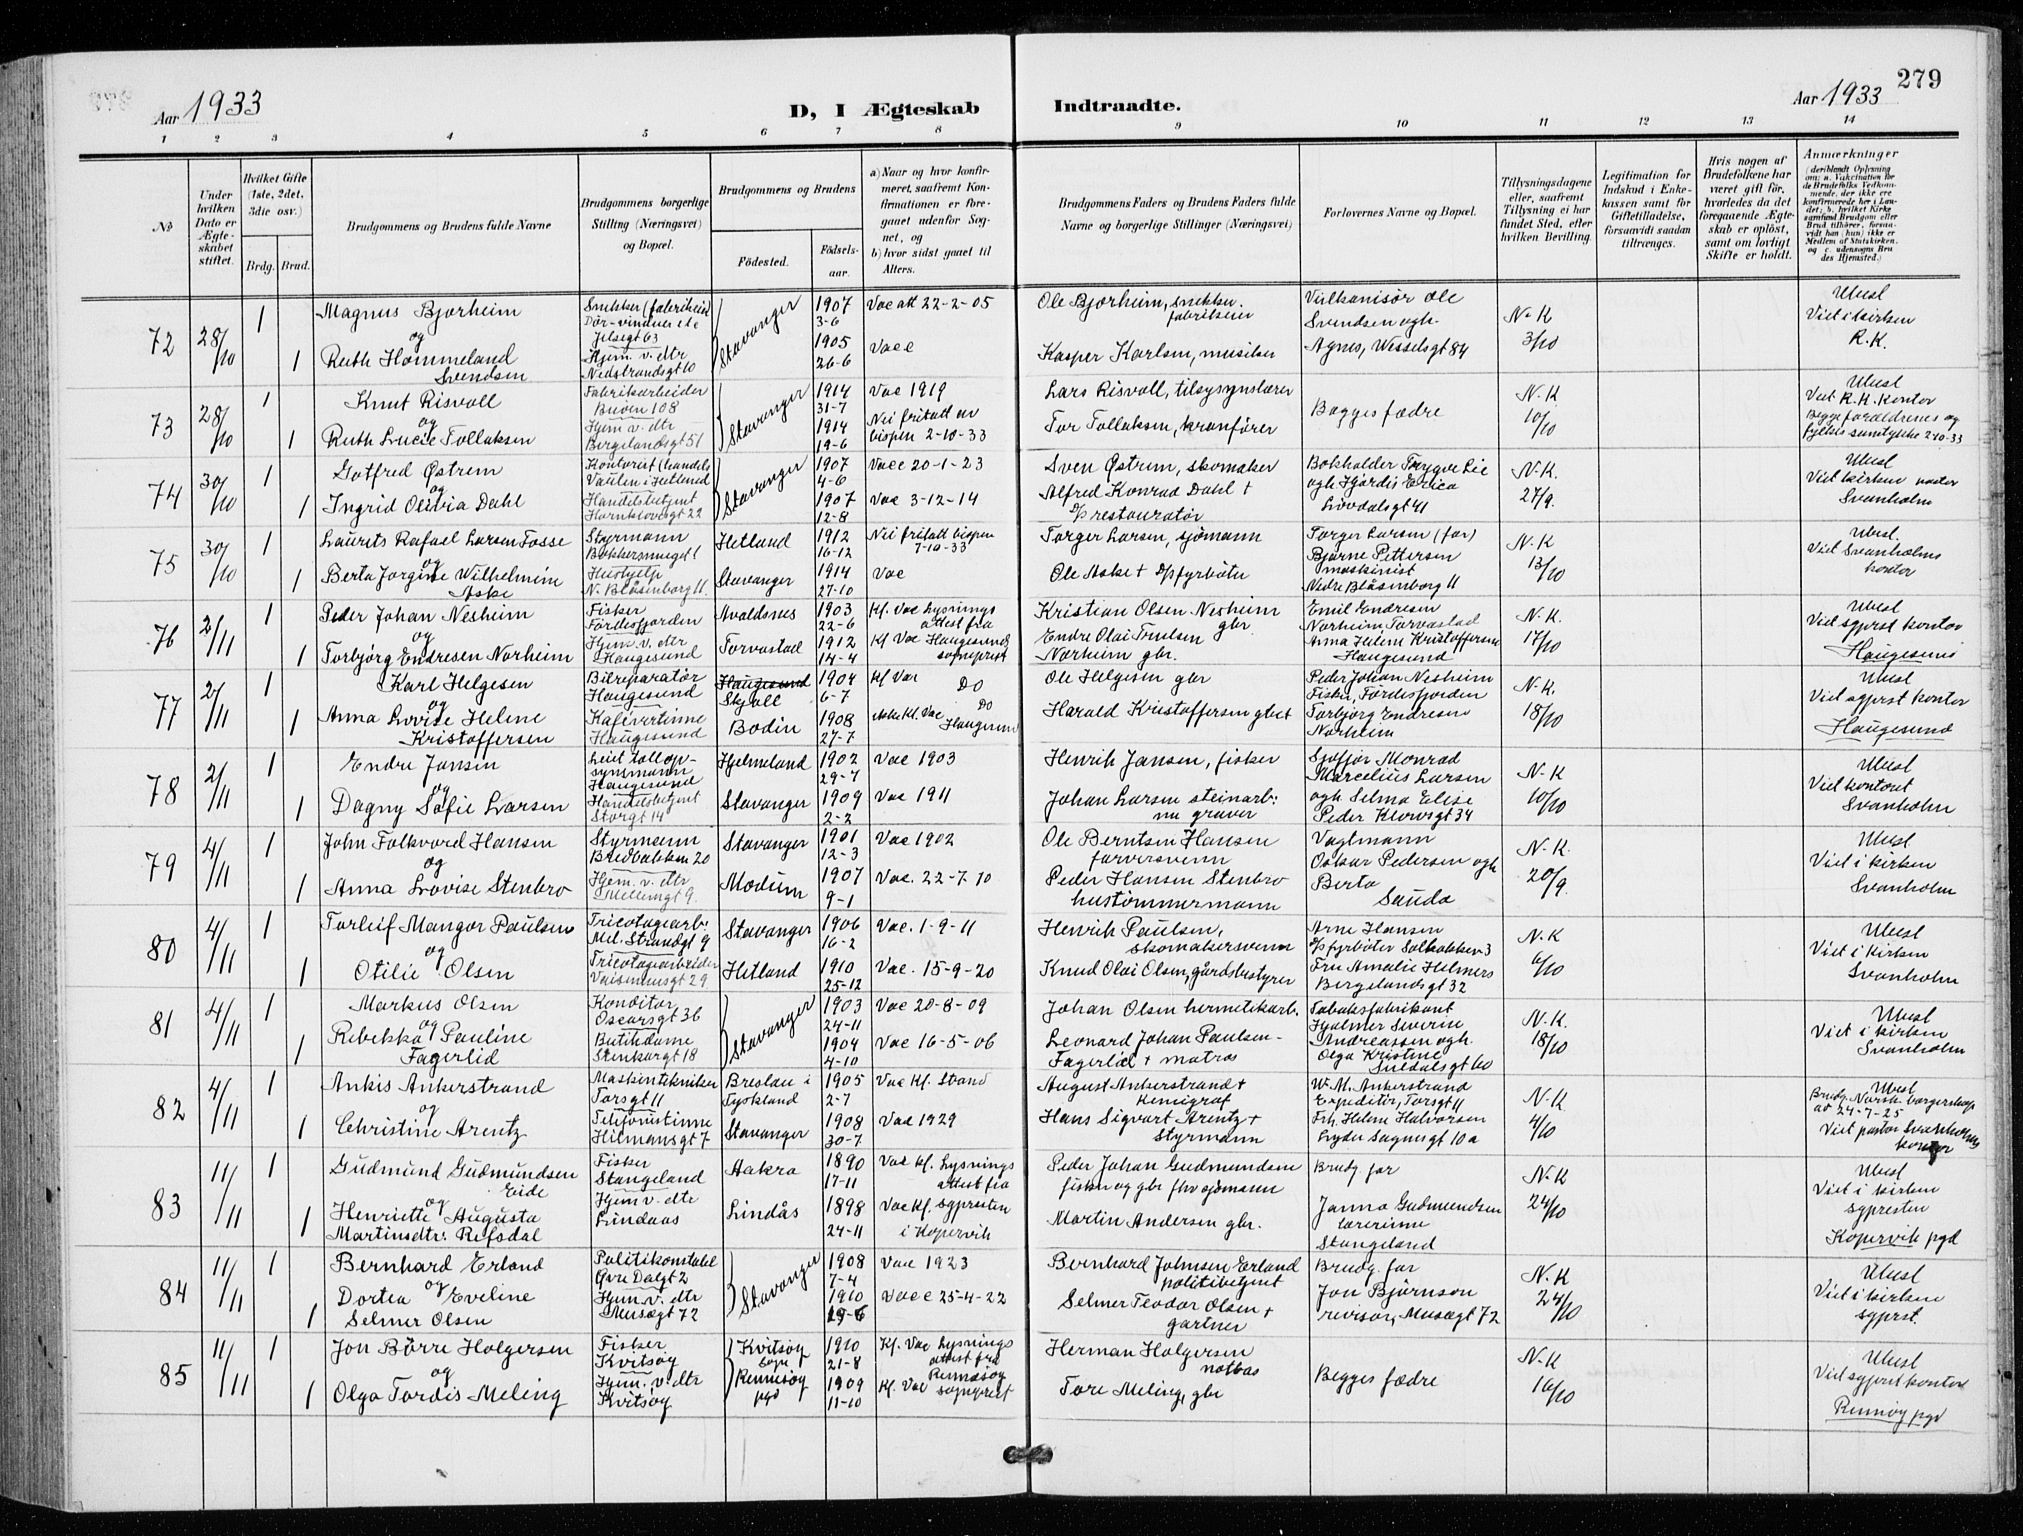 279
Aar 1933
D, I Ægteskab Indtraadte.
Aar 1933
1 2 3 4 5 6 7 8 9 10 11 12 13 14
No
Under hvilken Dato er Ægteskabet stiftet.
Hvilket Gifte (1ste, 2det, 3die osv.)
Brdg. Brud.
Brudgommens og Brudens fulde Navne
Brudgommens borgerlige Stilling (Næringsvei) og Bopæl.
Brudgommens og Brudens
Födested.
Födselsaar.
a) Naar og hvor konfirmeret, saafremt Konfirmationen er foregaaet udenfor Sognet, og
b) hvor sidst gaaet til Alters.
Brudgommens Faders og Brudens Faders fulde Navne og borgerlige Stillinger (Næringsvei)
Forlovernes Navne og Bopæl.
Tillysningsdagene eller, saafremt Tillysning ei har fundet Sted, efter hvilken Bevilling.
Legitimation for Indskud i Enkekassen samt for Giftetilladelse, forsaavidt saadan tiltrænges.
Hvis nogen af Brudefolkene har været gift før, hvorledes da det foregaaende Ægteskab er oplöst, samt om lovligt Skifte er holdt.
Anmærkninger
(deriblandt Oplysning om: a. Vakcination for de Brudefolks Vedkommende, der ikke ere konfirmerede her i Landet; b. hvilket Kirkesamfund Brudgom eller Brud tilhører, forsaavidt han (hun) ikke er Medlem af Statskirken, og c. udensogns Brudes Hjemsted.)
72 28/10 1 Magnus Bjørheim
og
1 Ruth Hommeland Svendsen
Snekker (fabrikeier)
Dør-vinduer etc
Jelsegt 63
Hjem. v. dtr
Nedstrandsgt 10
Stavanger
1907 3-6
1905 26-6
Vac att 22-2-05
Vacc
Ole Bjørheim, snekker fabrikeier
Kasper Karlsen, musiker
Vulkanisör Ole
Svendsen ogh.
Agnes, Wesselsgt 84
N-K 3/10
Ubesl
Viet i kirken
R.K.
73 28/10 1 Knut Risvoll
og
1 Ruth Lucie Tollaksen
Fabrikarbeider
Buøen 108
Hjem v. dtr
Bergelandsgt 51
Stavanger
1914 31-7
1914 19-6
Vac 1919
Nei fritatt av bispen 2-10-33
Lars Risvoll, tilsynslærer
Tor Tollaksen, kranfører
Begges fædre
N-K 10/10
Ubesl
Viet R.K. kontor
Begge foreldrenes og fylkes samtykke 2-10-33
74 30/10 1 Gotfred Østrem
og
1 Ingrid Olivia Dahl
Kontorist (handels
Vaulen i Hetland
Handelsbetjent
Harnklovsgt 22
Stavanger
1907 4-6
1907 12-8
Vacc 20-1-23
Vac 3-12-14
Sven Østrem, skomaker
Alfred Konrad Dahl +
D/p restauratør
Bokholder Trygve Lie
ogh Hjørdis Erica
Løvdalsgt 41
N-K. 27/9.
Ubesl
Viet kirken pastor
Svanholm
75 30/10 1 Laurits Rafael Larsen Fosse
og
1 Berta Jorgine Wilhelmine Aske
Styrmann
Bekkersmuget 1
Hushjelp
N. Blåsenborg 11.
Hetland
Stavanger
1912 16-12
1914 27-10
Nei fritatt bispen 7-10-33
Vac
Torger Larsen, sjømann
Ole Aske + D/p fyrbøter
Torger Larsen (far)
Bjarne Pettersen
maskinist
Nedre Blåsenborg 11
N-K 13/10
Ubesl.
Viet Svanholms
kontor
76 2/11 1 Peder Johan Nesheim
og
1 Torbjørg Endresen Norheim
Fisker
Førdesfjorden
Hjem v. dtr
Haugesund
Avaldsnes
Torvastad
1903 22-6
1912 14-4
Kf. Vac Lysnings attest fra
Kf Vac Haugesunds sogneprest
Kristian Olsen Nesheim gbr
Endre Olai
Norheim gbr.
Emil Endresen
Norheim Torvastad
Anna Helene Kristoffersen
Haugesund
N-K. 17/10
Ubesl
Viet sgprst kontor
Haugesund
77 2/11 1 Karl Helgesen
og
1 Anna Lovise Helene Kristoffersen
Bilreparatør
Haugesund
Kafévertinne
Haugesund
Skjold
Bodin
1904 6-7
1908 27-7
Kf Vac Do
Kf. Vac Do Haugesund
Ole Helgesen gbr
Harald Kristoffersen gbr
Peder Johan Nesheim
Fisker, Førdesfjorden
Torbjørg Endresen
Norheim
N-K. 18/10
Ubesl
Viet sgprst kontor
Haugesund
78 2/11 1 Endre Jansen
og
1 Dagny Sofie Larsen
tollop-
synsmann
Haugesund
Handelsbetjent
Storgt 14
Hjelmeland
Stavanger
1902 29-7
1909 2-2
Vac 1903
Vac 1911
Henrik Jansen, fisker
Johan Larsen steinarb:
nu graver
Sjåfør Monrad
Marcelius Larsen
ogh. Selma Elise
Peder Klowsgt 34
N-K 10/10
Ubesl
Viet kontoret
Svanholm
79 4/11 1 John Folkvord Hansen
og
1 Anna Lovise Stenbro
Styrmann
Bredbakken 20
Hjem. v. dtr
Mellemgt 9.
Stavanger
Modum
1901 12-3
1907 9-1
Vac 1902
Vac. 22-7-10
Ole Berntsen Hansen
farversvenn
Peder Hansen Stenbro
hustømmermann
Vaglmann
Oskar Pedersen ogh
Berta
Sauda
N-K. 20/9.
Ubesl
Viet i kirken
Svanholm
80 4/11 1 Torleif Mangor Paulsen
og
1 Otilie Olsen
Tricotagearb.
Mel. Strandgt 9
Tricotagearbeider
Vaisenhusgt 29
Stavanger
Hetland
1906 16-2
1910 25-12
Vac. 1-9-11
Vac. 15-9-20
Henrik Paulsen,
skomakersvenn
Knud Olai Olsen, gårdsbestyrer
Arne Hansen
D/p fyrbøter Solbakken 3
Fru Amalie Helmers
Bergelandsgt 32
N-K 6/10
Ubesl
Viet i kirken
Svanholm
81 4/11 1 Markus Olsen
og
1 Rebekka Pauline Fagerlid
Konditor
Oscarsgt 36
Butikdame
Stenkargt 18
Stavanger
1903 24-11
1904 4-10
Vac 20-8-09
Vac 16-5-06
Johan Olsen hermetikarb.
Leonard Johan Paulsen-
Fagerlid + matros
Tobaksfabrikant
Hjalmer Severin
Andreassen ogh.
Olga Kristine
Suldalsgt 60
N-K. 18/10
Ubesl
Viet i kirken
Svanholm
82 4/11 1 Ankis Ankerstrand
og
1 Christine Arentz
Maskintekniker
Torsgt 11
Telefonistinne
Hilmansgt 7
Breslau i Tyskland
Stavanger
1905 2-7
1908 30-7
Vac Kf. Strand
Vac 1929
August Ankerstrand +
Kemigraf
Hans Sigvart Arentz +
Styrmann
W. M. Ankerstrand
Expeditør, Torsgt 11
Frk. Helene Halvorsen
Lyder Sagensgt 10 a
N-K 4/10
Ubesl
Brudg. Norsk borgerskap
av 24-7-25
Viet pastor Svanholms
kontor
83 11/11 1 Gudmund Gudmundsen Eide
og
1 Henriette Augusta Martinsdtr. Refsdal
Fisker
Stangeland
Hjem v. dtr
Lindaas
Aakra
Lindås
1890 17-11
1898 24-11
Vac Kf. Lysnings attest fra
Vac Kf. sgpresten i Kopervik
Peder Johan Gudmundsen
fisker og gbr fhv sjømann
Martin Andersen gbr.
Brudg. far
Janna Gudmundsen
lærerinne
Stangeland
N-K 24/10
Ubesl
Viet i kirken
sgpresten
Kopervik pgd
84 11/11 1 Bernhard Erland
og
1 Dortea Eveline Selmer Olsen
Politikonstabel
Øvre Dalgt 2
Hjem. v. dtr
Musægt 72
Stavanger
1908 7-4
1910 19-6
Vac 1923
Vacc 25-4-22
Bernhard Johnsen Erland
politibetjent
Selmer Teodor Olsen +
gartner
Brudg. far
Jon Bjørnson
revisor, Musægt 72
N-K 24/10
Ubesl
Viet i kirken
sgprst.
85 11/11 1 Jon Børre Holgersen
og
1 Olga Tordis Meling
Fisker
Kvitsøy
Hjem. v. dtr
Kvitsøy
Kvitsøy sogn
Rennesøy pgd
1910 21-8
1909 11-10
Kf. Vac Lysnings attest fra
Rennesøy
Kf. Vac sogneprest
Herman Holgersen
notbas
Tore Meling, gbr
Begges fædre
N-K 16/10
Ubesl
Viet sgprst kontor
Rennesøy pgd